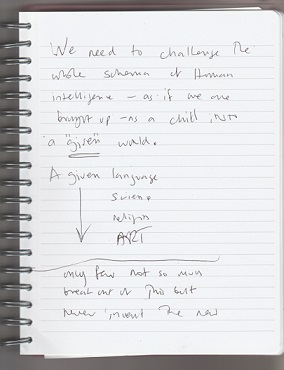 We need to challenge the
whole schema of Human
intelligence – as if we are
brought up – as a child INTO
a "given" world.
A given language
Science
religion
ART
only few not so much
break out of This but
never invent The new